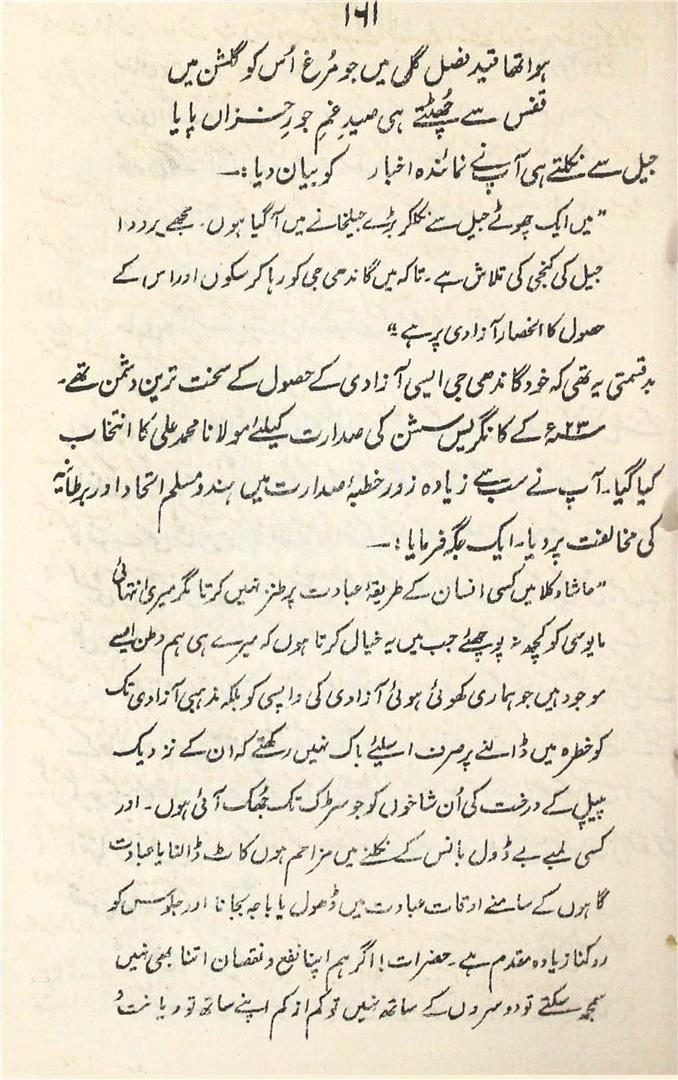 ۱۶۱
ہوا تھا قید فصل گل میں جو مُرغ اُس کو گلشن میں
قفس سے چُھٹتے ہی صیدِ غمِ جورِ خزاں پایا
جیل سے نکلتے ہی آپ نے نمائندہ اخبار کو بیان دیا:۔
"میں ایک چھوٹے جیل سے نکلکر بڑے جیلخانے میں آ گیا ہوں۔ مجھے یرودا
جیل کی کنجی کی تلاش ہے۔ تاکہ میں گاندھی جی کو رہا کر سکوں اور اس کے
حصول کا انحصار آزادی پر ہے۔"
بدقسمتی یہ تھی کہ خود گاندھی جی ایسی آزادی کے حصول کے سخت ترین دشمن تھے۔
۲۳ء کے کانگریس سشن کی صدارت کیلئے مولانا محمد علیؒ کا انتخاب
کیا گیا۔ آپ نے سب سے زیادہ زور خطبۂ صدارت میں ہندو مسلم اتحاد اور برطانیہ
کی مخالفت پر دیا۔ ایک جگہ فرمایا:۔
"حاشا و کلا میں کسی انسان کے طریقۂ عبادت پر طنز نہیں کرتا مگر میری انتہائی
مایوسی کو کچھ نہ پوچھئے جب میں یہ خیال کرتا ہوں کہ میرے ہی ہم وطن ایسے
موجود ہیں جو ہماری کھوئی ہوئی آزادی کی واپسی کو بلکہ مذہبی آزادی تک
کو خطرہ میں ڈالنے پر صرف اسلئے باک نہیں رکھتے کہ ان کے نزدیک
پیپل کے درخت کی اُن شاخوں کو جو سڑک تک جُھک آئی ہوں۔ اور
کسی لمبے بے ڈول بانس کے نکلنے میں مزاحم ہوں کاٹ ڈالنا یا عبادت
گاہوں کے سامنے اوقات عبادت میں ڈھول یا باجہ بجانا اور جلوس کو
روکنا زیادہ مقدم ہے۔ حضرات! اگر ہم اپنا نفع و نقصان اتنا بھی نہیں
سمجھ سکتے تو دوسروں کے ساتھ نہیں تو کم از کم اپنے ساتھ تو دیانت